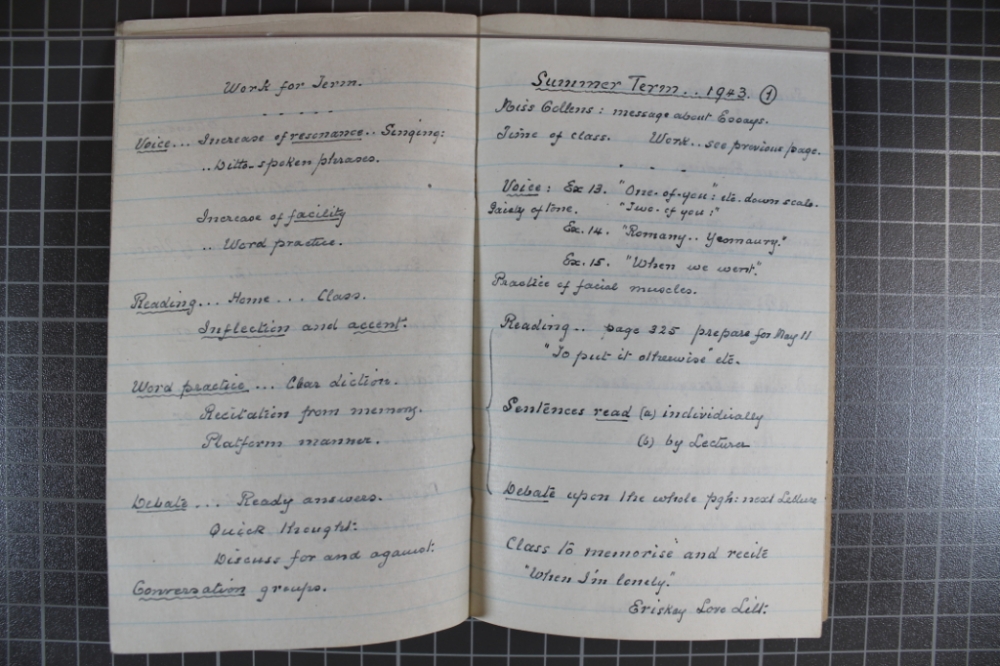 Work for Term.
Voice... Increase of resonance.. Singing:
..Ditto - spoken phrases.
Increase of facility
.. Word practice.
Reading... Home ... Class.
Inflection and accent.
Word practice ... Clear diction.
Recitation from memory.
Platform manner.
Debate ... Ready answers.
Quick thought.
Discuss for and against.
Conversation groups.
Summer Term.. 1943. 1
Miss Collens: message about Essays.
Time of class. Work.. see previous page.
Voice: Ex 13. "One-of-you": etc. down scale.
Gaiety of tone. "Two-of you:"
Ex. 14. "Romany.. Yeomanry."
Ex. 15. "When we went."
Practice of facial muscles.
Reading.. page 325 prepare for May 11
"To put it otherwise" etc.
Sentences read (a) individually
(b) by Lecturer
Debate upon the whole pgh: next Lecture
Class to memorise and recite
"When I'm lonely."
Eriskey Love Lilt.